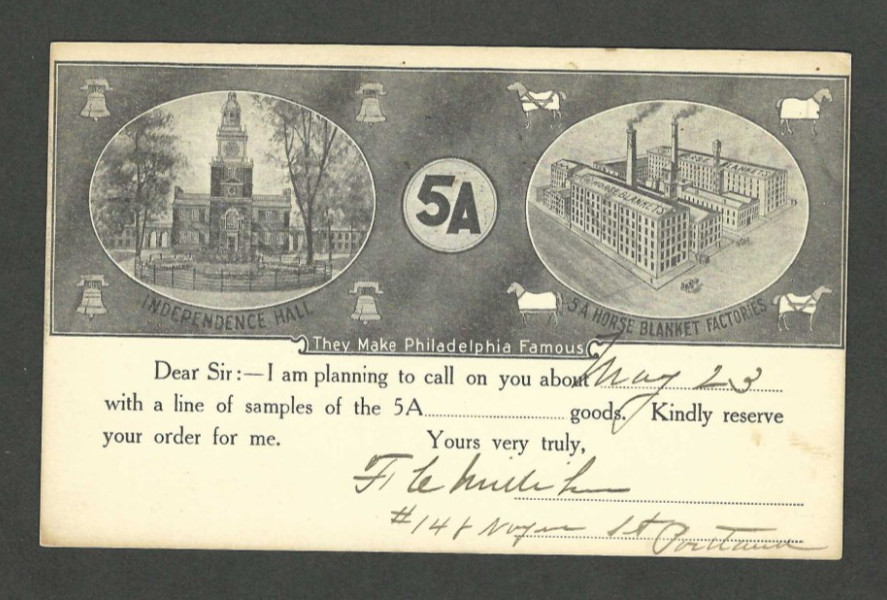 5A
5 A HORSE BLANKETS
5A BLANKETS
INDEPENDENCE HALL
5A HORSE BLANKET FACTORIES
They Make Philadelphia Famous
Dear Sir:—I am planning to call on you about May 23
with a line of samples of the 5A.................... goods. Kindly reserve
your order for me. Yours very truly,
#148 St Portland